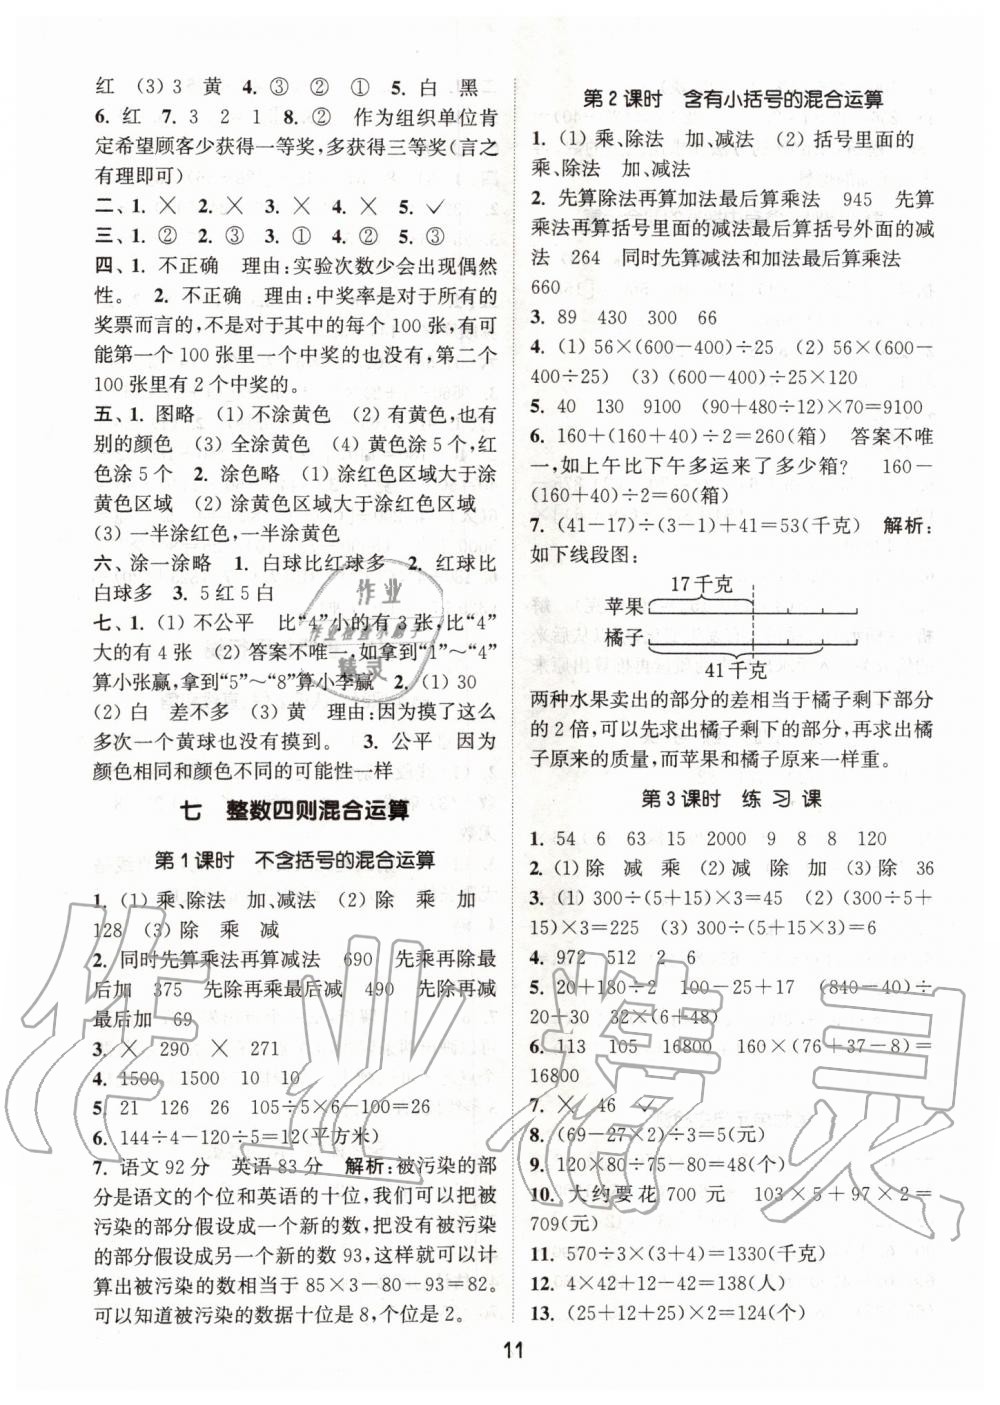 红　(3) 3　黄　4. ③　②　①　5. 白　黑
6. 红　7. 3　2　1　8. ②　作为组织单位肯
定希望顾客少获得一等奖，多获得三等奖(言之
有理即可)
二、1. ×　2. ×　3. ×　4. ×　5. ✓
三、1. ②　2. ③　3. ①　4. ②　5. ③
四、1. 不正确　理由：实验次数少会出现偶然
性。　2. 不正确　理由：中奖率是对于所有的
奖票而言的，不是对于其中的每个 100 张，有可
能第一个 100 张里一个中奖的也没有，第二个
100 张里有 2 个中奖的。
五、1. 图略　(1) 不涂黄色　(2) 有黄色，也有
别的颜色　(3) 全涂黄色　(4) 黄色涂 5 个，红
色涂 5 个　2. 涂色略　(1) 涂红色区域大于涂
黄色区域　(2) 涂黄色区域大于涂红色区域
(3) 一半涂红色，一半涂黄色
六、涂一涂略　1. 白球比红球多　2. 红球比
白球多　3. 5 红 5 白
七、1. (1) 不公平　比“4”小的有 3 张，比“4”
大的有 4 张　(2) 答案不唯一，如拿到“1”～“4”
算小张赢，拿到“5”～“8”算小李赢　2. (1) 30
(2) 白　差不多　(3) 黄　理由：因为摸了这么
多次一个黄球也没有摸到。　3. 公平　因为
颜色相同和颜色不同的可能性一样
七　整数四则混合运算
第 1 课时　不含括号的混合运算
1. (1) 乘、除法　加、减法　(2) 除　乘　加
128　(3) 除　乘　减
2. 同时先算乘法再算减法　690　先乘再除最
后加　375　先除再乘最后减　490　先除再减
最后加　69
3. ×　290　×　271
4. 1500　1500　10　10
5. 21　126　26　105÷5×6－100＝26
6. 144÷4－120÷5＝12(平方米)
7. 语文 92 分　英语 83 分　解析：被污染的部
分是语文的个位和英语的十位，我们可以把被
污染的部分假设成一个新的数，把原来没污染
的部分假设成另一个新的数 93，这样就可以计
算出被污染的数相当于 85×3－80－93＝82。
可以知道被污染的数据十位是 8，个位是 2。
第 2 课时　含有小括号的混合运算
1. (1) 乘、除法　加、减法　(2) 括号里面的
乘、除法　加、减法
2. 先算除法再算加法最后算乘法　945　先算
乘法再算括号里面的减法最后算括号外面的减
法　264　同时先算减法和加法最后算乘法
660
3. 89　430　300　66
4. (1) 56×(600－400)÷25　(2) 56×(600－
400÷25)　(3) (600－400)÷25×120
5. 40　130　9100　(90＋480÷12)×70＝9100
6. 160＋(160＋40)÷2＝260(箱)　答案不唯
一，如上午比下午多运来了多少箱？　160－
(160＋40)÷2＝60(箱)
7. (41－17)÷(3－1)＋41＝53(千克)　解析：
如下线段图：
17 千克
苹果
橘子
41 千克
两种水果卖出的部分的差相当于橘子剩下部分
的 2 倍，可以先求出橘子剩下的部分，再求出橘
子原来的质量，而苹果和橘子原来一样重。
第 3 课时　练 习 课
1. 54　6　63　15　2000　9　8　8　120
2. (1) 除　减　乘　(2) 减　除　加　(3) 除　36
3. (1) 300÷(5＋15)×3＝45　(2) (300÷5＋
15)×3＝225　(3) 300÷(5＋15×3)＝6
4. 972　512　2　6
5. 20＋180÷2　100－25×1＋17　(840－40)÷
20＋30　32×(6＋48)
6. 113　105　16800　160×(76＋37－8)＝
16800
7. ×　46　✓
8. (69－27×2)÷3＝5(元)
9. 120×80÷50－80＝48(个)　(个)
10. 大约要花 700 元　103×5＋97×2＝
709(元)
11. 570÷3×(3＋4)＝1330(千克)
12. 4×42＋12－42＝138(人)
13. (25＋12＋25)×2＝124(个)
11
作业
作业检查小助手
精灵
作业精灵